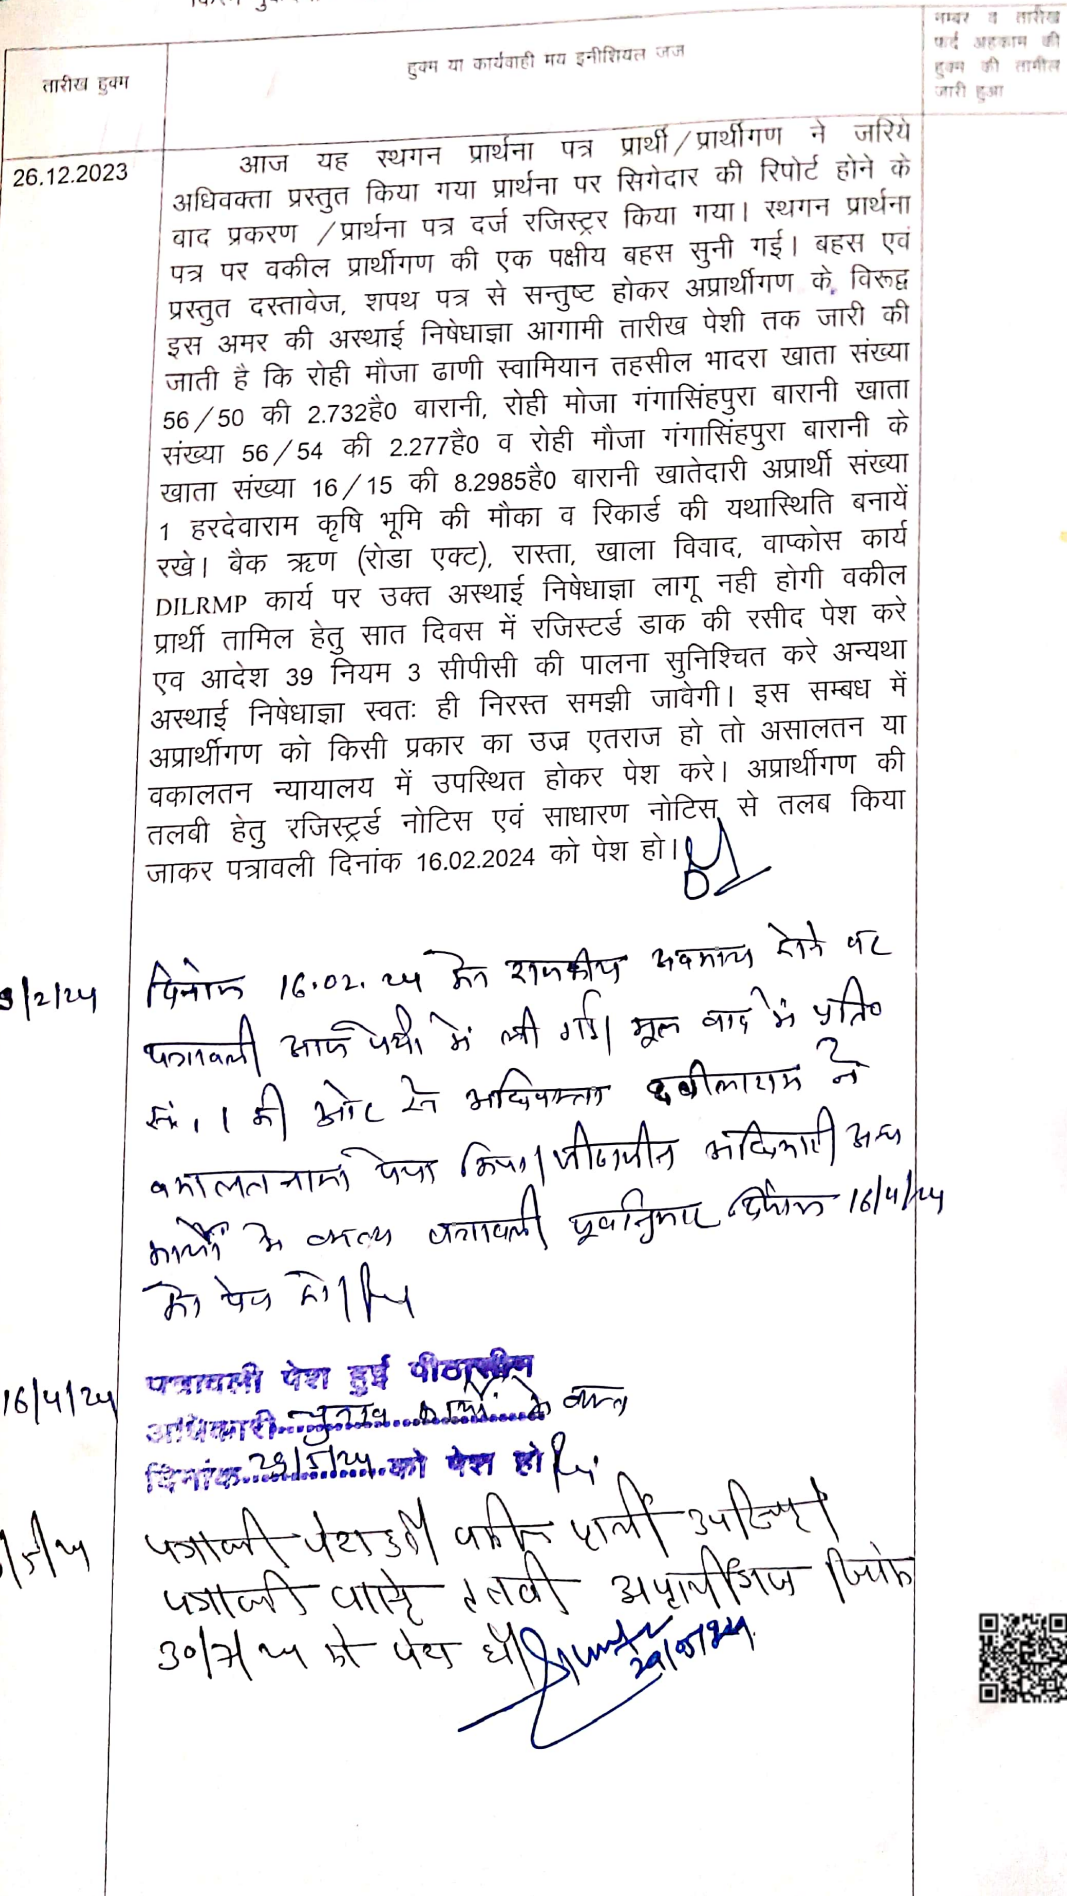 तारीख हुक्म
हुक्म या कार्यवाही मय इनीशियल जज
नम्बर व तारीख
फर्द अहकाम की
हुक्म की तामील
जारी हुआ
26.12.2023
आज यह स्थगन प्रार्थना पत्र प्रार्थी/प्रार्थीगण ने जरिये
अधिवक्ता प्रस्तुत किया गया प्रार्थना पर सिगेदार की रिपोर्ट होने के
वाद प्रकरण /प्रार्थना पत्र दर्ज रजिस्ट्रर किया गया। स्थगन प्रार्थना
पत्र पर वकील प्रार्थीगण की एक पक्षीय बहस सुनी गई। बहस एवं
प्रस्तुत दस्तावेज, शपथ पत्र से सन्तुष्ट होकर अप्रार्थीगण के विरूद्व
इस अमर की अस्थाई निषेधाज्ञा आगामी तारीख पेशी तक जारी की
जाती है कि रोही मौजा ढाणी स्वामियान तहसील भादरा खाता संख्या
56/50 की 2.732है0 बारानी, रोही मोजा गंगासिंहपुरा बारानी खाता
संख्या 56/54 की 2.277है0 व रोही मौजा गंगासिंहपुरा बारानी के
खाता संख्या 16/15 की 8.2985है0 बारानी खातेदारी अप्रार्थी संख्या
1 हरदेवाराम कृषि भूमि की मौका व रिकार्ड की यथास्थिति बनायें
रखे। बैक ऋण (रोडा एक्ट), रास्ता, खाला विवाद, वाप्कोस कार्य
DILRMP कार्य पर उक्त अस्थाई निषेधाज्ञा लागू नही होगी वकील
प्रार्थी तामिल हेतु सात दिवस में रजिस्टर्ड डाक की रसीद पेश करे
एव आदेश 39 नियम 3 सीपीसी की पालना सुनिश्चित करे अन्यथा
अस्थाई निषेधाज्ञा स्वतः ही निरस्त समझी जावेगी। इस सम्बध में
अप्रार्थीगण को किसी प्रकार का उज्र एतराज हो तो असालतन या
वकालतन न्यायालय में उपस्थित होकर पेश करे। अप्रार्थीगण की
तलबी हेतु रजिस्ट्रर्ड नोटिस एवं साधारण नोटिस से तलब किया
जाकर पत्रावली दिनांक 16.02.2024 को पेश हो।
/2/24 दिनांक 16.02.24 को राजकीय अवकाश होने पर
पत्रावली आज पेशी में ली गई। मूल वाद में प्रति०
सं. 1 की ओर से अधिवक्ता ने
वकालतनामा पेश किया। पीठासीन अधिकारी अन्य
कार्यों में व्यस्त पत्रावली पूर्वानुसार दिनांक 16/4/24
को पेश हो।
16/4/24 पत्रावली पेश हुई पीठासीन
अधिकारी चुनाव कार्यो में व्यस्त
दिनांक 29/5/24 को पेश हो
/5/24 पत्रावली पेश हुई। वकील प्रार्थी उपस्थित।
पत्रावली वास्ते तलबी अप्रार्थीगण दिनांक
30/7/24 को पेश हो।
29/05/2024